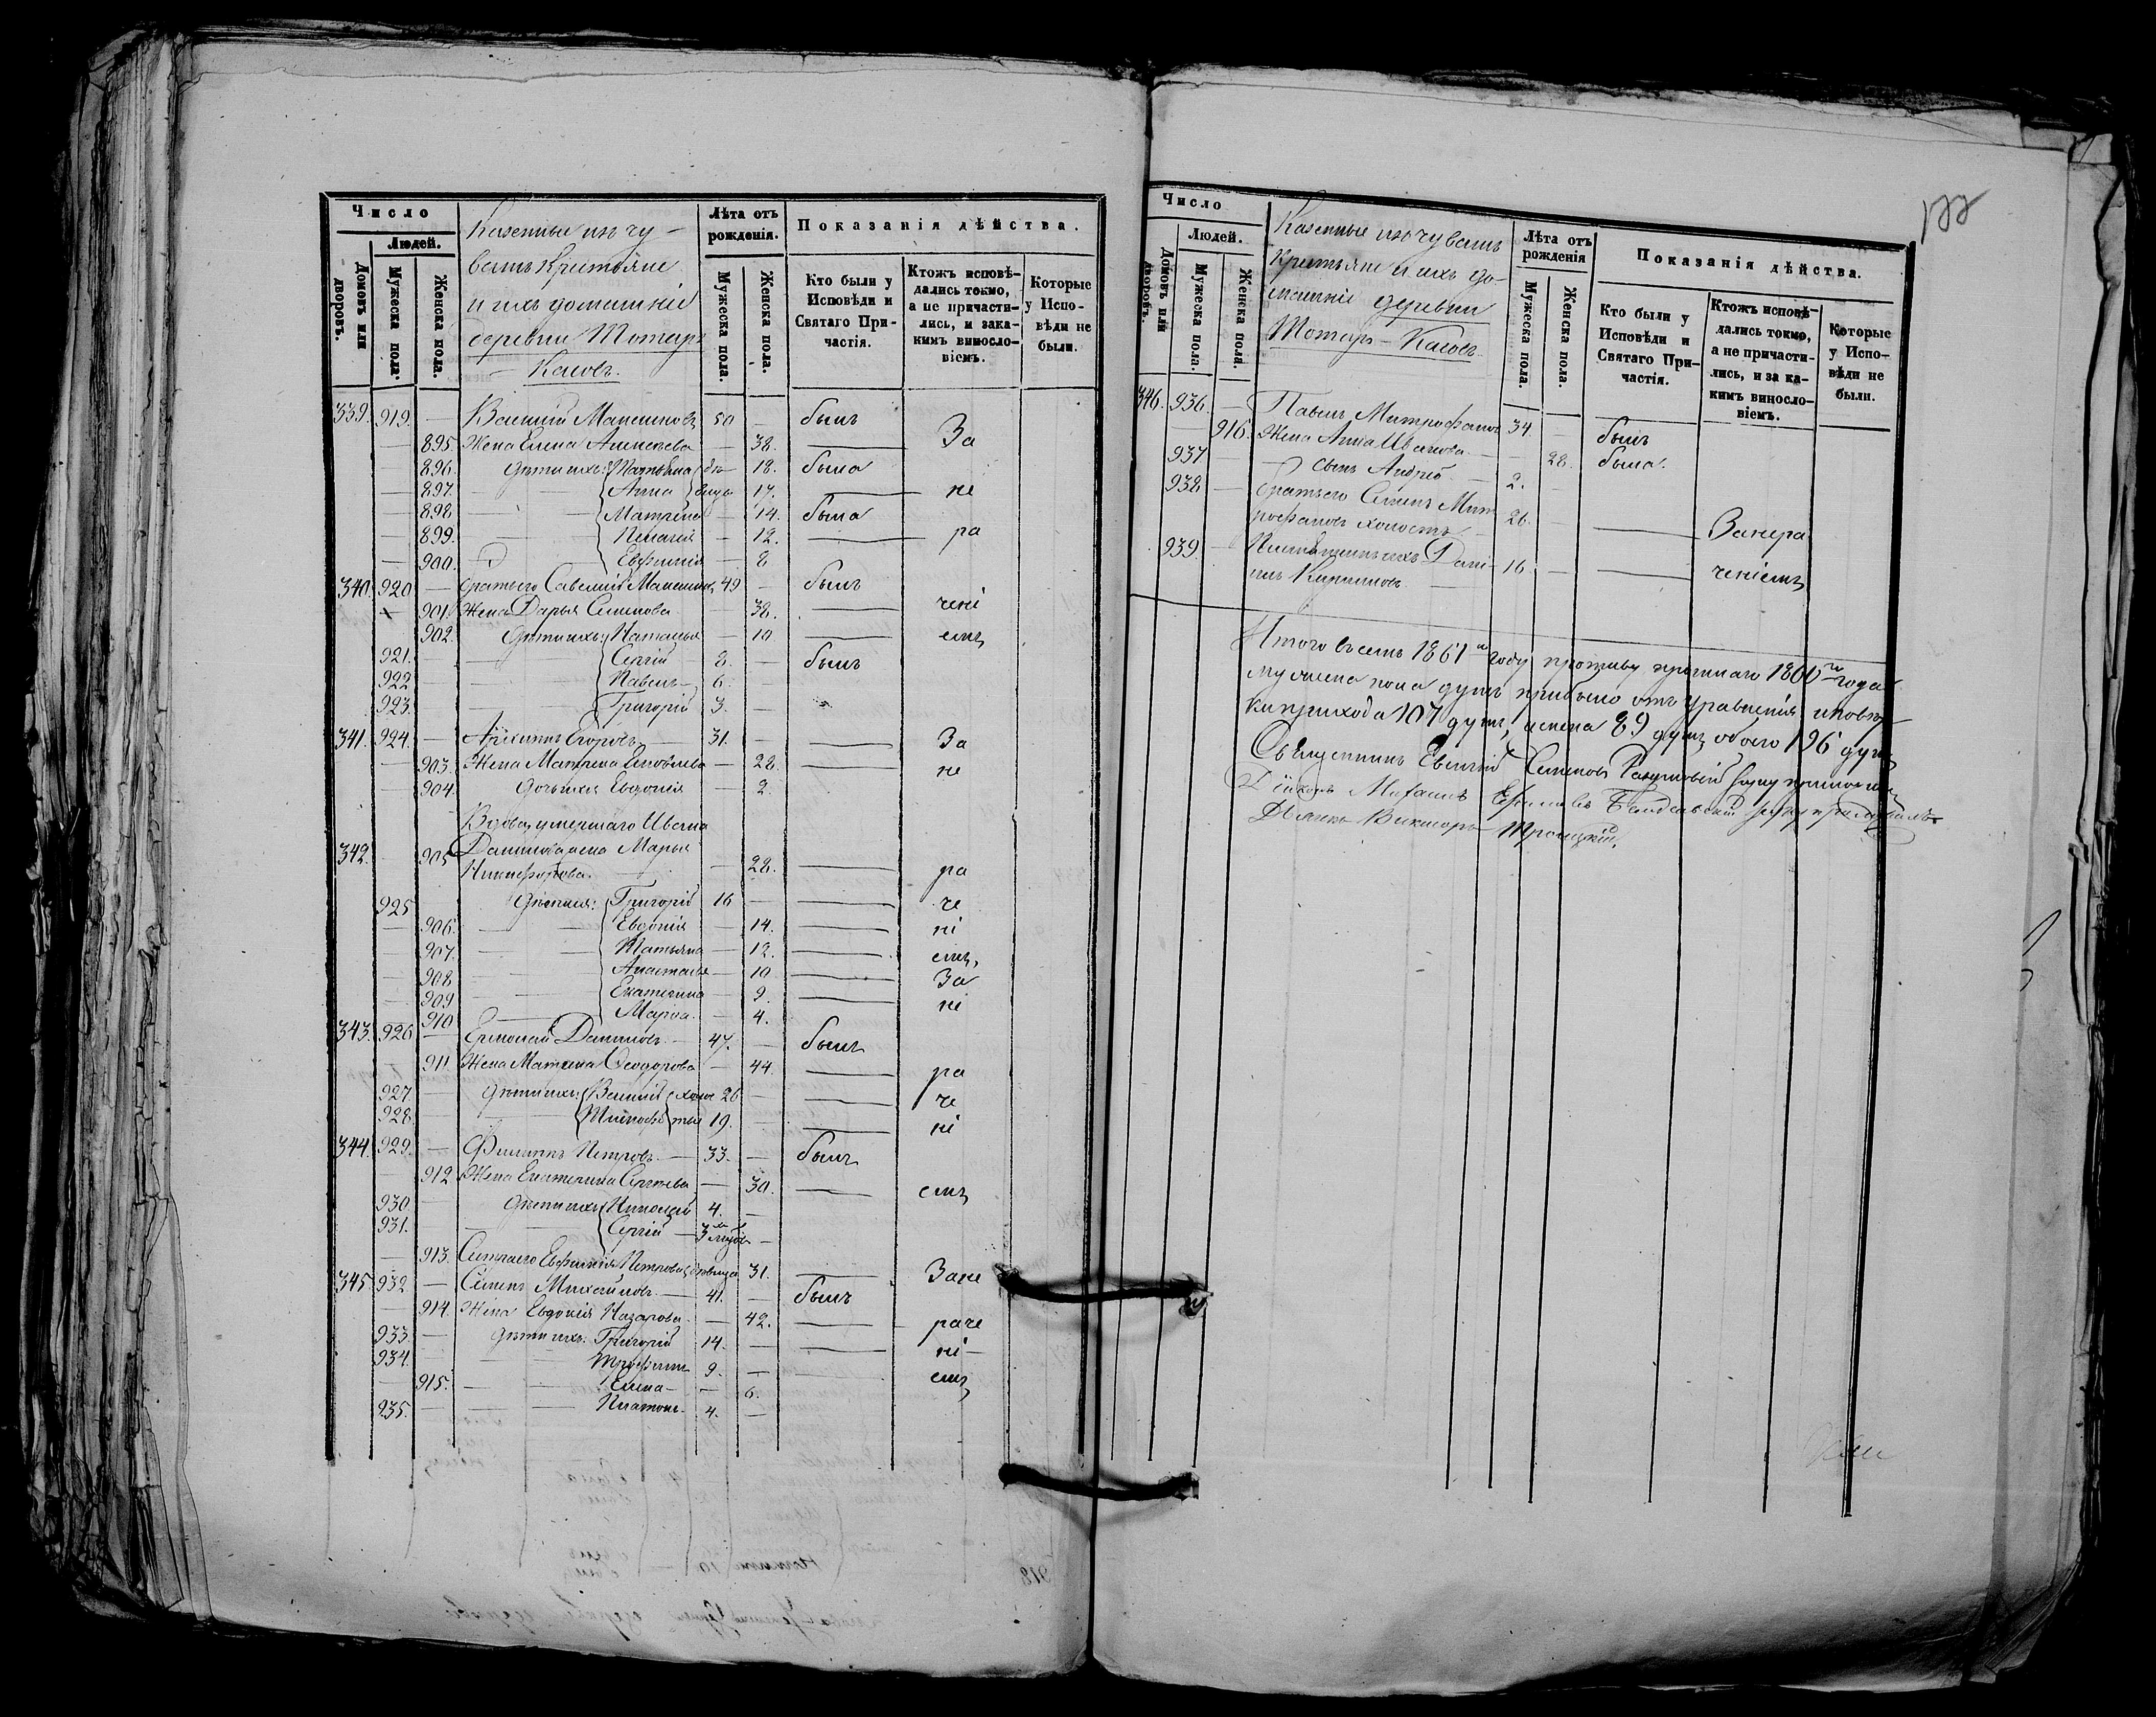 Число
Людей.
Домовъ или дворовъ.
Мужеска пола.
Женска пола.
Казенные изъ чу-
вашъ крестьяне
и ихъ домашніе
деревни
Лѣта отъ рожденія.
Мужеска пола.
Женска пола.
Показанія дѣйства.
Кто были у Исповѣди и Святаго При-частія.
Ктожъ исповѣ-дались токмо, а не причасти-лись, и зака-кимъ винослo-віемъ.
Которые у Испо-вѣди не были.
339. 919. — Василій Максимовъ 50 — былъ
— 895. Жена Елена Алексѣева — 38. — За
— 896. Дѣти ихъ: Татьяна — 18. была
— 897. Анна — 17. — не
— 898 Матрена — 14. была
— 899. Пелагія — 12. — ра
— 900. Евфимія — 8
340. 920 — братъ его Савелій Максимовъ 49 — былъ
901. Жена Дарья Семенова — 38. — чені
902. Дѣти ихъ: Наталья — 10 — емъ
921. — Сергій 8. — былъ
922 — Павелъ 6.
923. — Григорій 3. —
341. 924. — Егоровъ 31. — За
— 903. Жена Матрена Яковлева — 28. — не
— 904. Дочь ихъ Евдокія — 2.
Вдова, умершаго Ивана
342. 905 Данилова жена Марья
Никифорова. — 28. — ра
925 Дѣти ея: Григорій 16 — че
— 906. Евдокія — 14. — ні
— 907. Татьяна — 12. — емъ,
— 908 Анастасья — 10 — За
— 909 Екатерина — 9. — не
— 910 Марѳа — 4.
343. 926 — Ермолай Даниловъ 47. — былъ
— 911. Жена Матрена Ѳеодорова — 44. — ра
927 — Дѣти ихъ: Василій холо 26 — че
928. Тимофей стые 19. — ні
344. 929. — Филиппъ Петровъ. — 33. — былъ
912 Жена Екатерина Сергѣева — 30. — емъ
930. — Дѣти ихъ Николай 4. —
931. — Сергій —
— 913. Сестра его Евфимія Петрова, дѣвица 31. — Зане
345. 932 — Семенъ Михайловъ — 41. — былъ
— 914 Жена Евдокія Назарова. — 42. — раче
933. — Дѣти ихъ: Григорій 14. — ні —
934. Трофимъ 9. — емъ
— 915. Елена — 6.
935. — Платонъ. 4. —
Число
Людей.
Домовъ или дворовъ.
Мужеска пола.
Женска пола.
Казенные изъ чувашъ
крестьяне и ихъ до-
машніе деревни
Лѣта отъ рожденія
Мужеска пола.
Женска пола.
Показанія дѣйства.
Кто были у Исповѣди и Святаго При-частія.
Ктожъ исповѣ-дались токмо, а не причасти-лись, и за ка-кимъ винослo-віемъ.
Которые у Испо-вѣди не были.
346. 936. — Павелъ Митрофановъ 34. — былъ
— 916. Жена Анна Иванова — 28. была.
937. — сынъ Андрей 2. —
938 — братъ его Семенъ Мит
рофановъ холостъ 26. — Занера
939. — Племянникъ ихъ Дани-
илъ Кирилловъ 16. — ченіемъ
Итого въ семъ 1861 м году противу прошлаго 1860 го года
мужеска пола душъ прибыло отъ уравненія
прихода 107 душъ, женска 89 душъ, обоего 196 душъ
Священникъ Семеновъ руку приложилъ
Діаконъ Михаилъ руку приложилъ.
Дьячекъ Викторъ Троицкій.